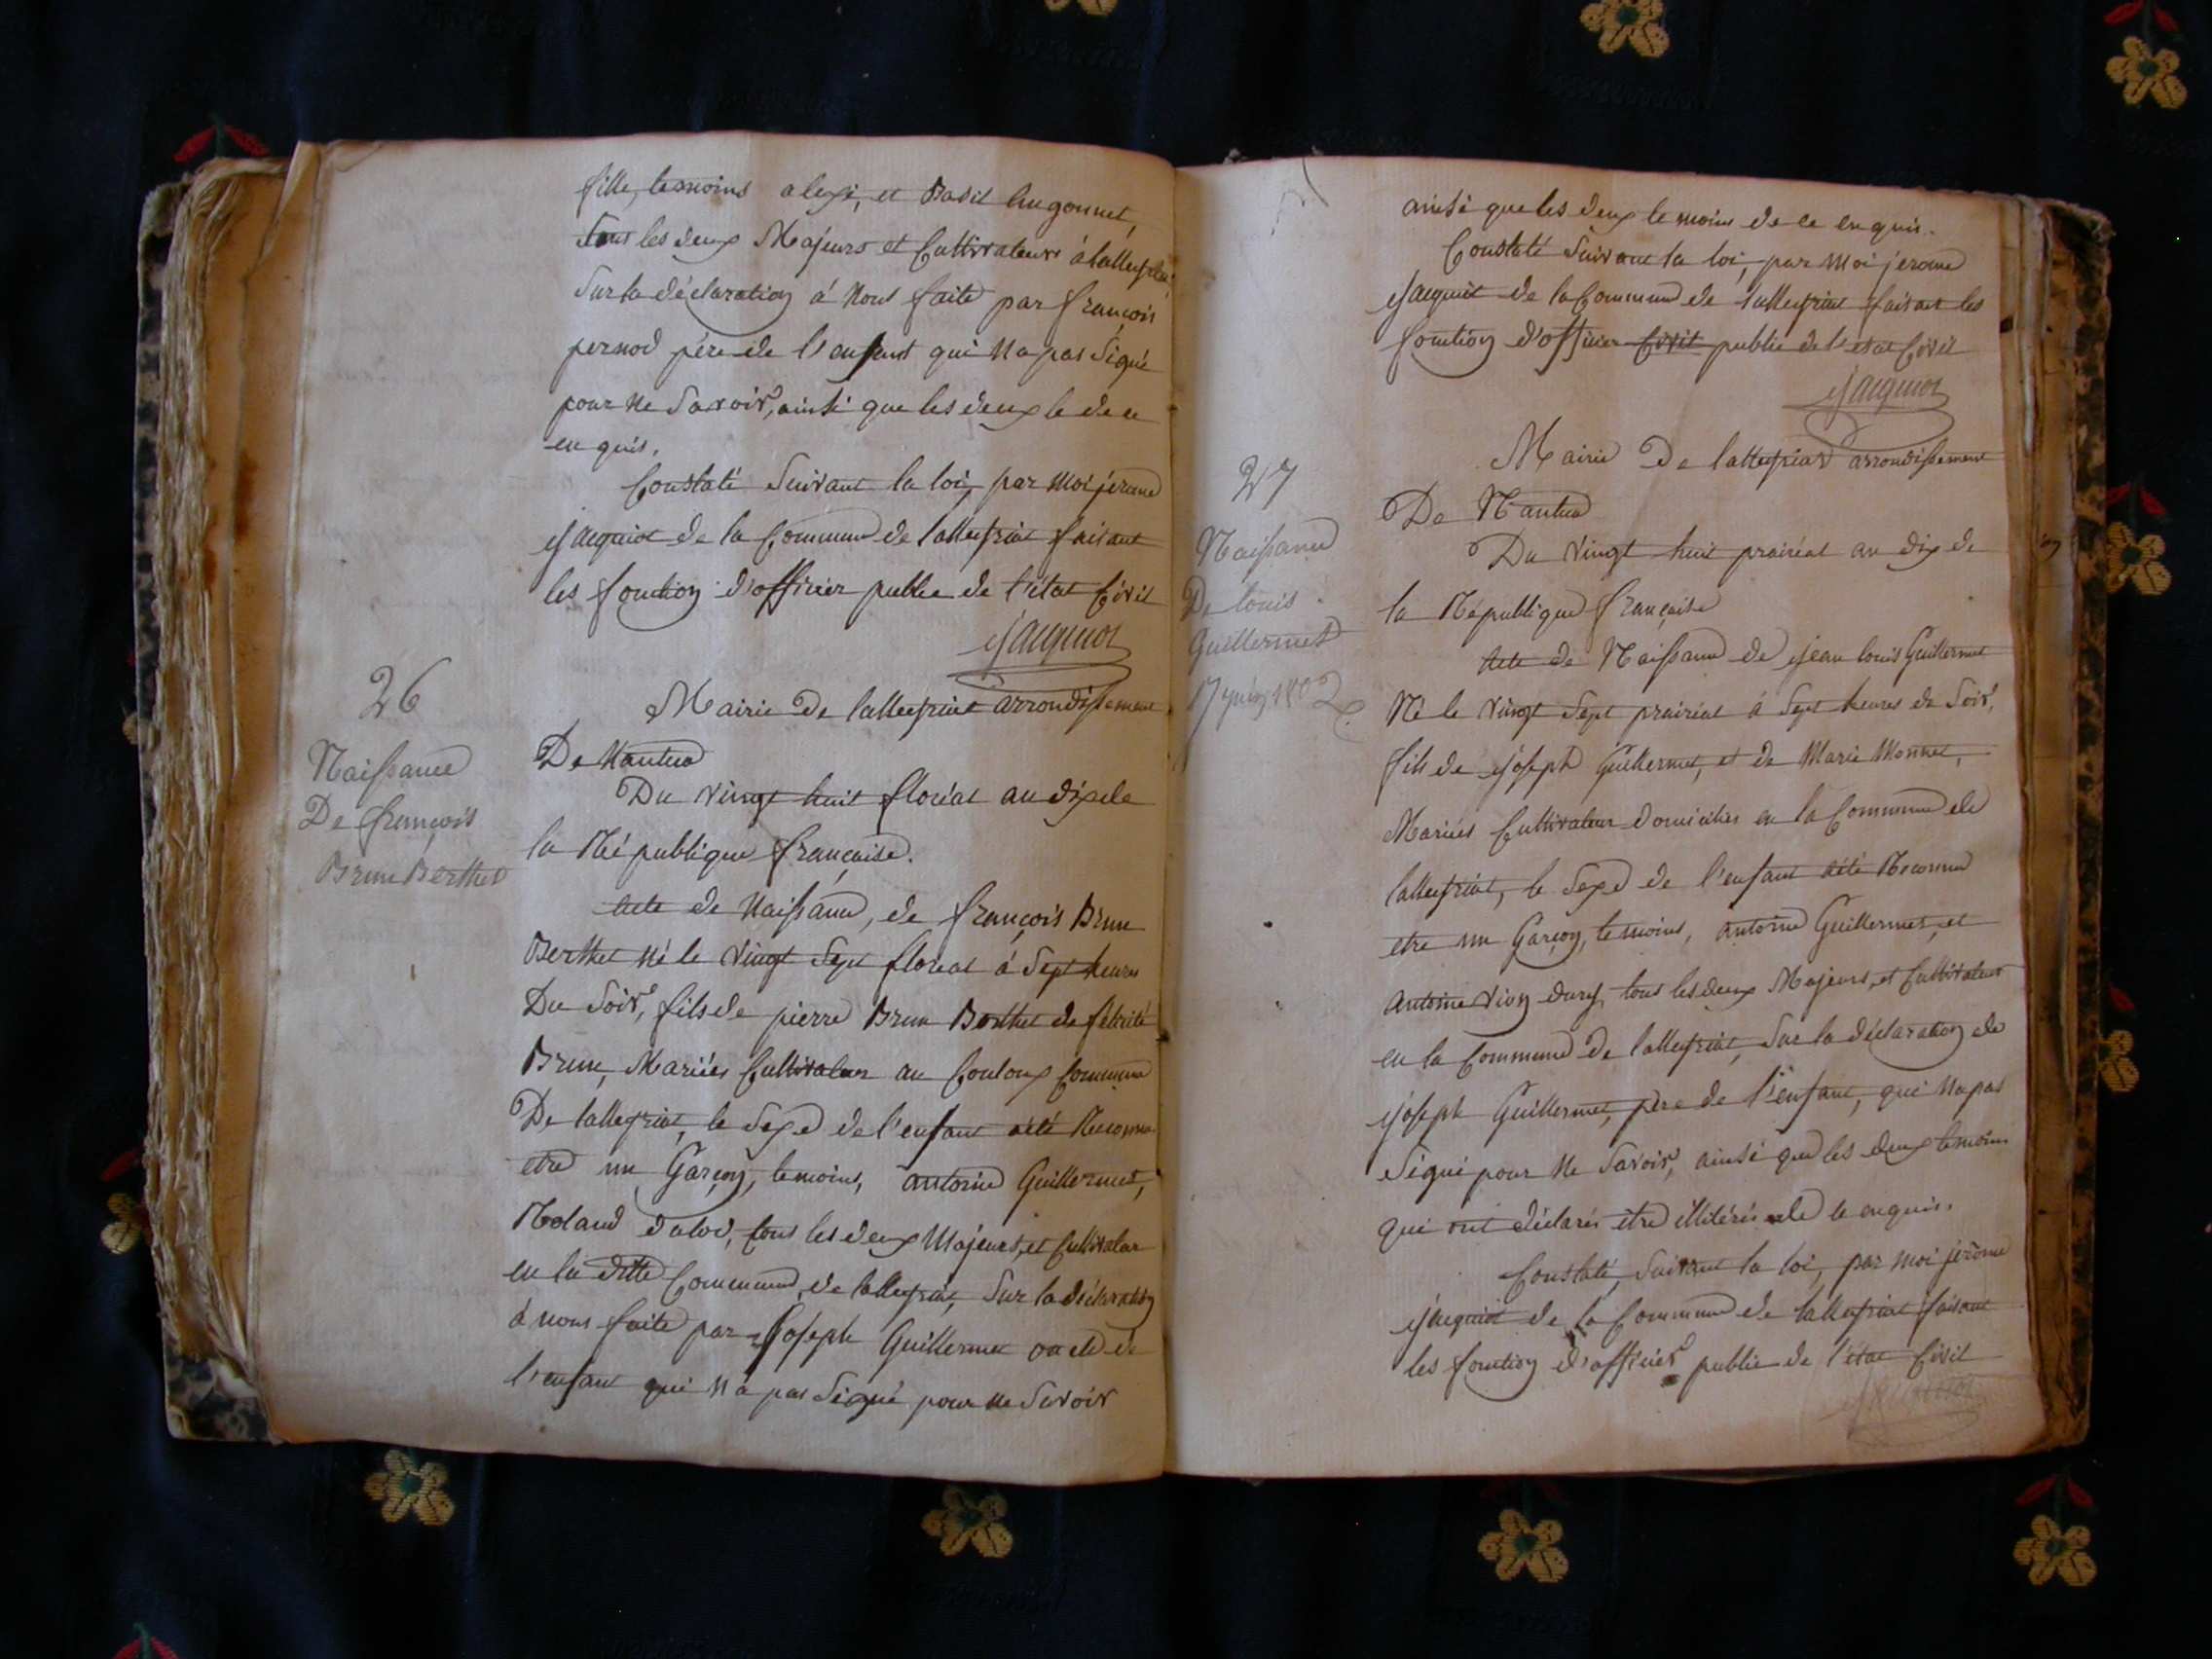 fille, temoins alexi, et Basil hugonnet,
tous les deux Majeurs et Cultivateurs á lalleyriat,
Sur la déclaration á Nous faite par françois
pernod pére de l'enfant qui Na pas Signé
pour Ne Savoir, ainsi que les deux te de ce
en quis.
Constaté Suivant la loi, par Moi jerome
jacquiot de la Commune de lalleyriat faisant
les fonction d'officier public de l'état Civil
jacquiot
26
Naissance
De françois
Brun Berthet
Mairie De lalleyriat arrondissement
De Nantua
Du vingt huit floréal an dix de
la République française.
Acte de Naissance, de françois Brun
Berthet Né le vingt Sept floreal á Sept heures
Du Soir, fils de pierre Brun Berthet de félicité
Brun, Mariés Cultivateur au Coutoux Commune
De lalleyriat, le Sexe de l'enfant a été Reconnu
etre un Garçon, temoins, antoine Guillermet,
Roland dalod, tous les deux Majeurs, et Cultivateur
en la ditte Commune, de lalleyriat, Sur la déclaration
á nous faite par Joseph Guillermet oncle de
l'enfant qui N'a pas Signé pour Ne Savoir
ainsi que les deux temoins de ce enquis.
Constaté Suivant la loi, par Moi jerome
jacquiot de la Commune de lalleyriat faisant les
fonction d'officier Civil public de l'etat Civil
jacquiot
27
Naissance
De louis
Guillermet
17 juin 1802
Mairie De lalleyriat arrondissement
De Nantua
Du vingt huit prairéal an dix de
la République française
Acte de Naissance de jean louis Guillermet
Né le vingt Sept prairéal á Sept heures du Soir,
fils de joseph Guillermet, et de Marie Monnet,
Mariés Cultivateur domiciliés en la Commune de
lalleyriat, le Sexe de l'enfant a été Reconnu
etre un Garçon, temoins, antoine Guillermet, et
antoine vion duref, tous les deux Majeurs, et Cultivateur
en la Commune de lalleyriat, Sur la déclaration de
joseph Guillermet, pére de l'enfant, qui Na pas
Signé pour Ne Savoir, ainsi que les deux temoins
qui ont déclarés être illitérés de ce enquis.
Constaté, Suivant la loi, par moi jerome
jacquiot de la Commune de lalleyriat faisant
les fonction d'officier public de l'état Civil
jacquiot